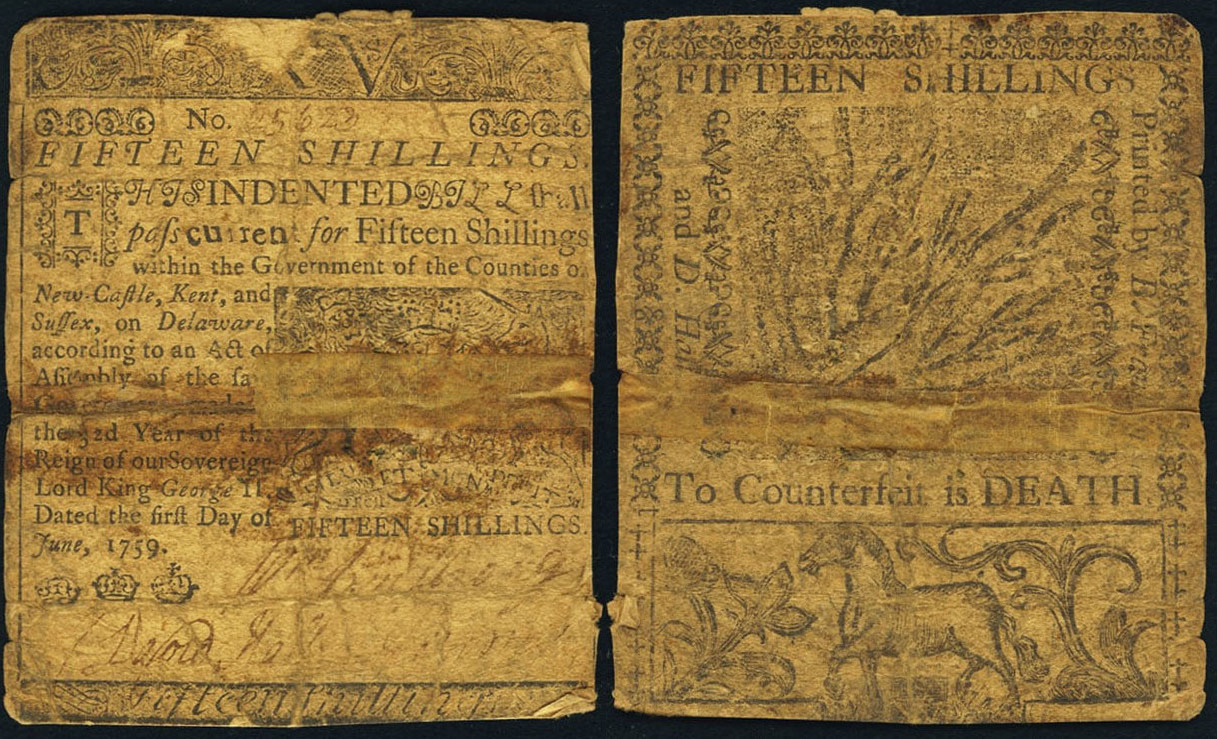 No. 25622
FIFTEEN SHILLINGS.
THIS INDENTED BILL ſhall
paſs current for Fifteen Shillings
within the Government of the Counties
New-Caſtle, Kent, and
Suſſex, on Delaware,
according to an Act of
Aſſembly of the
the 32d Year of the
Reign of our Sovereign
Lord King George II.
Dated the firſt Day of
June, 1759.
FIFTEEN SHILLINGS.
David
Fifteen Shillings
FIFTEEN SHILLINGS
Printed by B.
and D.
To Counterfeit is DEATH.